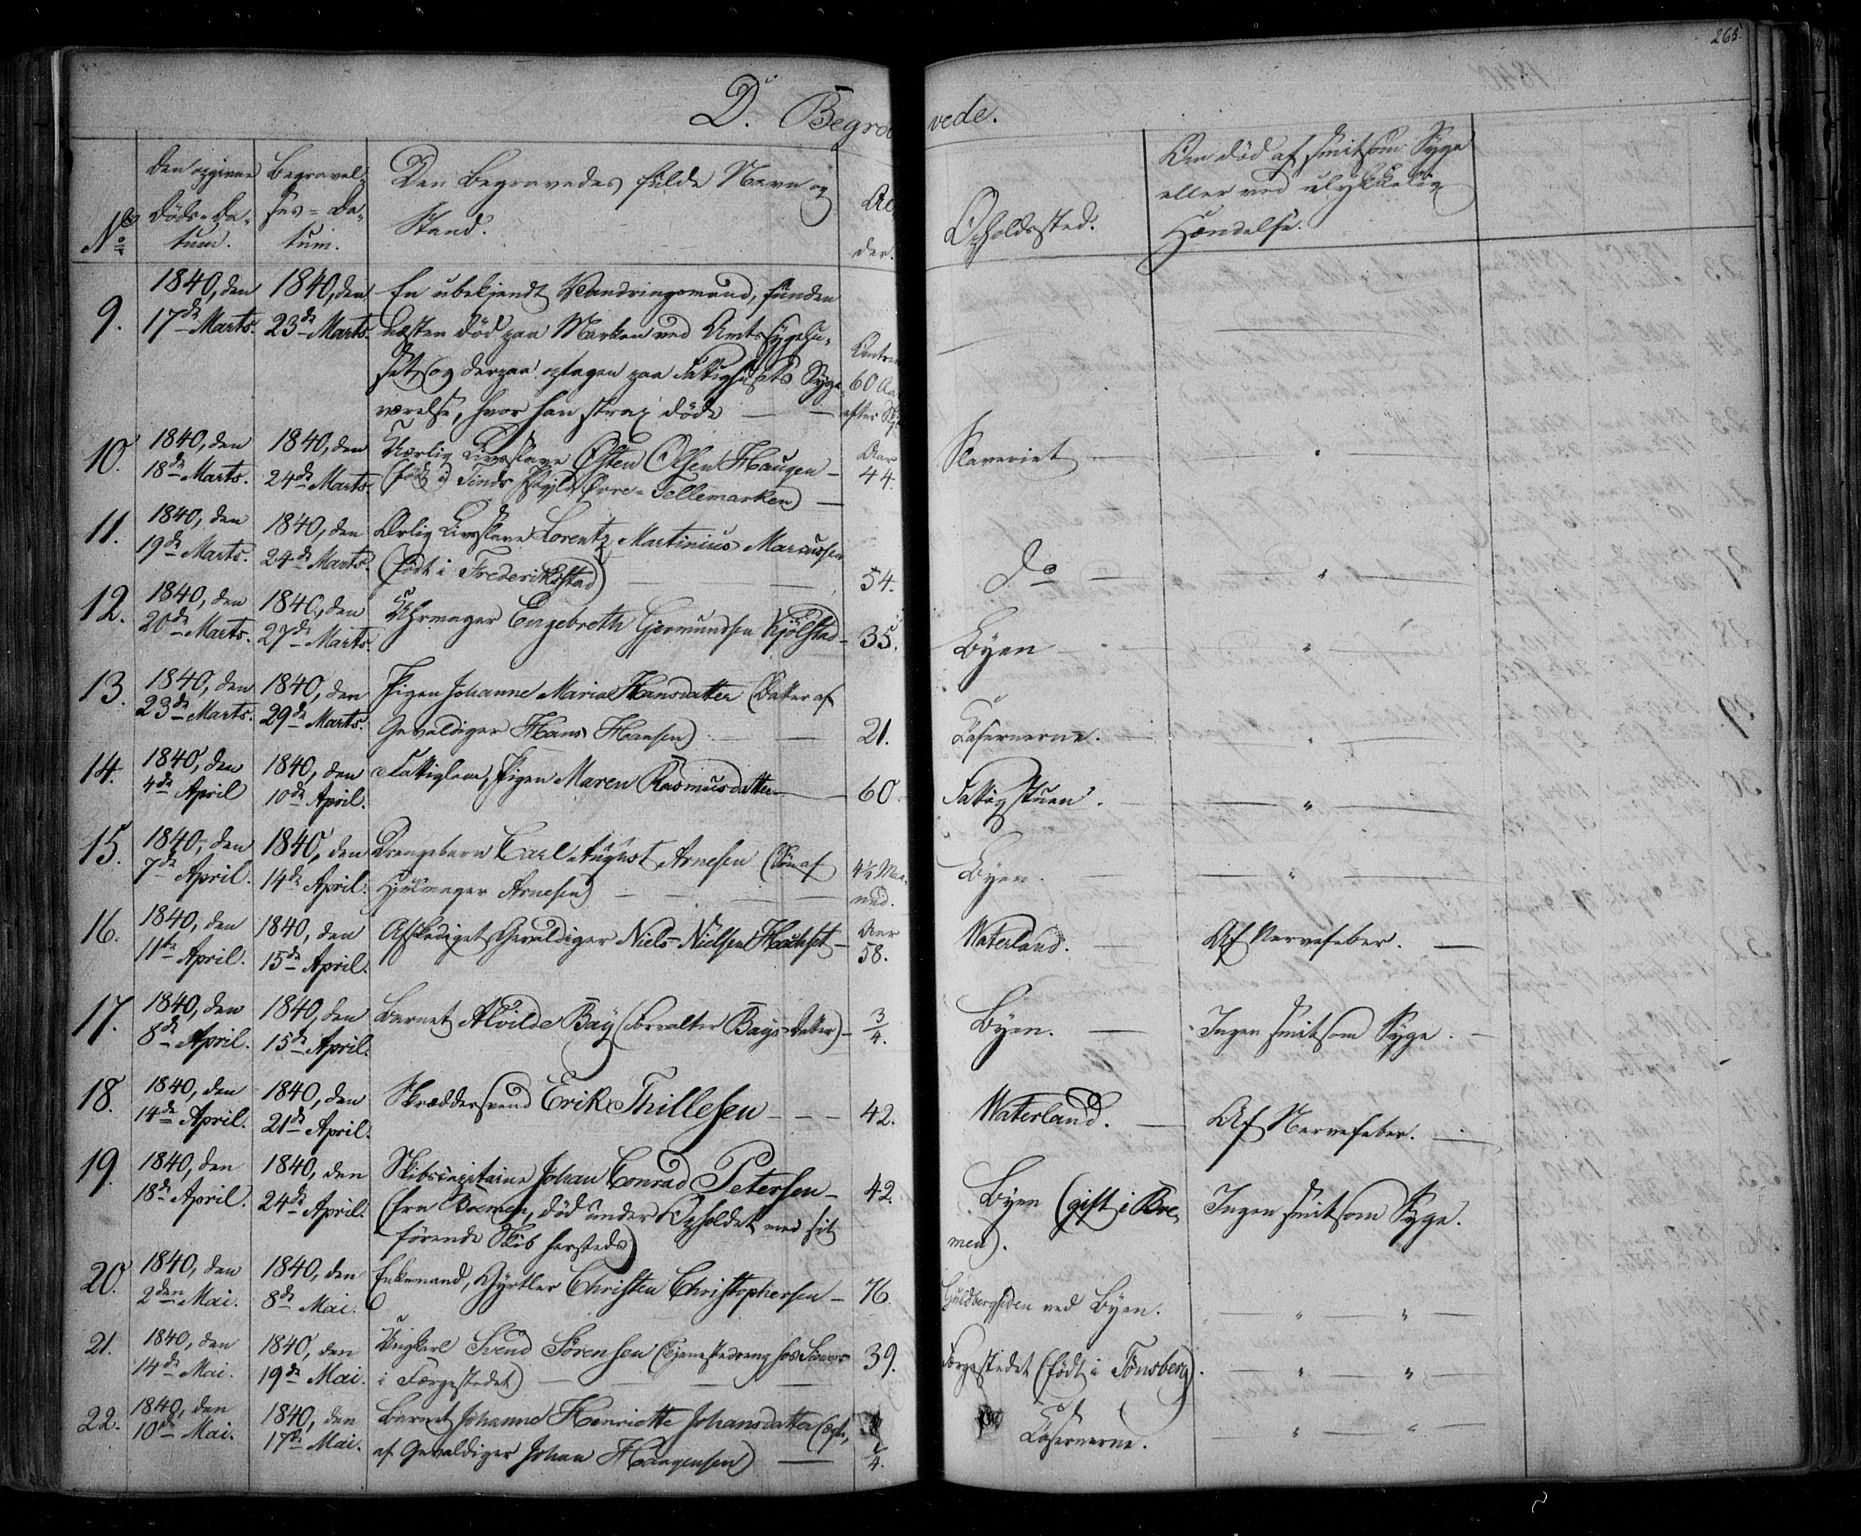 265.
D. Begravede.
No
Den opgivne Døds-Datum.
Begravelses-Datum.
Den Begravedes fulde Navn og Stand.
Alder.
Opholdssted.
Om død af smitsom Syge eller ved ulykkelig Hændelse.
9. 1840, den 17de Marts. 1840, den 23de Marts. En ubekjendt Vandringsmand, funden
næsten død paa Marken ved Amtssygehu-
set, og derpaa optagen paa Fattighusets Syge-
værelse, hvor han strax døde — 60
10. 1840, den 18de Marts. 1840, den 24de Marts. Livsslave Østen Olsen Haugen —
(født i Tinds Pgjld Øvre-Tellemarken) — Aar 44. Slaveriet — " —
11. 1840, den 19de Marts. 1840, den 24de Marts. Ærlig Livsslave Lorentz Martinius Marcussen
(født i Frederikstad) — 54. Do — " —
12. 1840, den 20de Marts. 1840, den 27de Marts. Uhrmager Engebreth Gjermundsen Kjølstad — 35. Byen — " —
13. 1840, den 23de Marts. 1840, den 29de Marts. Pigen Johanne Maria Hansdatter (Datter af
Gevaldiger Hans Hansen) — 21. Casernerne. — " —
14. 1840, den 4de April 1840, den 10de April. Fattiglem, Pigen Maren Rasmusdatter — 60. Fattigstuen. — " —
15. 1840, den 7de April. 1840, den 14de April. Drengebarn Carl August Arnesen (Søn af
Hjulmager Arnesen) — 4½ Maaned. Byen. — " —
16. 1840, den 11te April. 1840, den 15de April. Afskediget Gevaldiger Niels Nielsen — Aar 58. Waterland. — Af Nervefeber. —
17. 1840, den 8de April. 1840, den 15de April. Barnet Alvilde Bay (Forvalter Bays Datter) — 3/4. Byen. — Ingen smitsom Syge. —
18. 1840, den 14de April. 1840, den 21de April. Skræddersvend Erik Thillesen — — — 42. Waterland. — Af Nervefeber. —
19. 1840, den 18de April. 1840, den 24de April. Skibscapitaine Johan Conrad Petersen —
(fra Bremen, død under Opholdet med sit
førende Skib hersteds) 42. Byen (gift i Bre-
men). Ingen smitsom Syge.
20. 1840, den 2den Mai. 1840, den 8de Mai. Enkemand, Gjørtler Christen Christophersen — 76. ved Byen. — " — " —
21. 1840, den 14de Mai. 1840, den 19de Mai. Ungkarl Svend Sørensen (Tjenestedreng hos
i Færgestedet) — 39. Færgestedet (født i Tønsberg). — " — " —
22. 1840, den 10de Mai. 1840, den 17de Mai. Barnet Johanne Henriette Johansdatter
af Gevaldiger Johan Haagensen) — /4. Casernerne. — " — " —